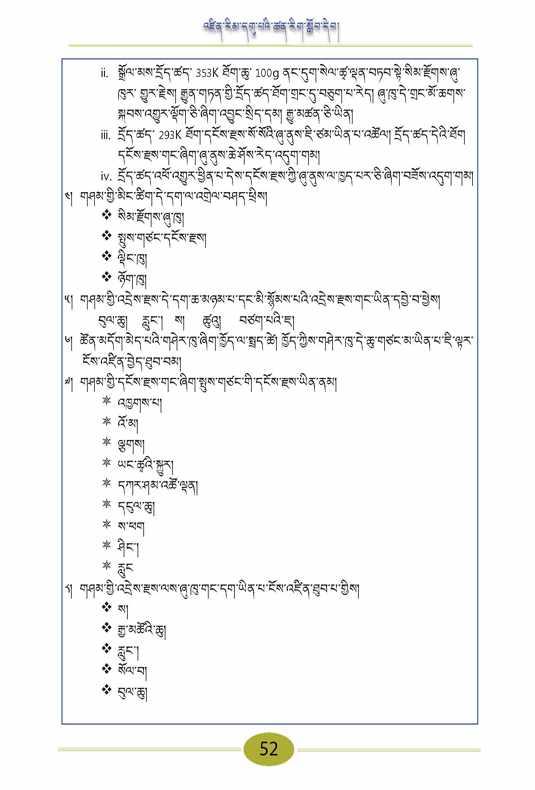 འཛིན་རིམ་དགུ་པའི་ཚན་རིག་སློབ་དེབ།
ii. སློལ་མས་དྲོད་ཚད་ 353K ཐོག་ཆུ་ 100g ནང་དུག་སེལ་ཚྭ་ལྡན་བཏབ་སྟེ་སིམ་རྫོགས་ཞུ་
ཁུར་ གྱུར་རྗེས། རྒྱུན་གཏན་གྱི་དྲོད་ཚད་ཐོག་གྲང་དུ་བཅུག་པ་རེད། ཞུ་ཁུ་དེ་གྲང་མོ་ཆགས་
སྐབས་འགྱུར་ལྡོག་ཅི་ཞིག་འབྱུང་སྲིད་དམ། རྒྱུ་མཚན་ཅི་ཡིན།
iii. དྲོད་ཚད་ 293K ཐོག་དངོས་རྫས་སོ་སོའི་ཞུ་ནུས་ཇི་ཙམ་ཡིན་པ་འཚོལ། དྲོད་ཚད་དེའི་ཐོག
དངོས་རྫས་གང་ཞིག་ཞུ་ནུས་ཆེ་ཤོས་རེད་འདུག་གམ།
iv. དྲོད་ཚད་འཕོ་འགྱུར་ཕྱིན་པ་དེས་དངོས་རྫས་ཀྱི་ཞུ་ནུས་ལ་ཁྱད་པར་ཅི་ཞིག་བཟོས་འདུག་གམ།
༤། གཤམ་གྱི་མིང་ཚིག་དེ་དག་ལ་འགྲེལ་བཤད་ཕྲིས།
❖ སིམ་རྫོགས་ཞུ་ཁུ།
❖ སྤུས་གཙང་དངོས་རྫས།
❖ ལྡིང་ཁུ།
❖ ཉོག་ཁུ།
༥། གཤམ་གྱི་འདྲེས་རྫས་དེ་དག་ཆ་མཉམ་པ་དང་མི་སྙོམས་པའི་འདྲེས་རྫས་གང་ཡིན་དབྱེ་བ་ཕྱེས།
བུལ་ཆུ། རླུང་། ས། ཚུའུ། བཙག་པའི་ཇ།
༦། ཚོན་མདོག་མེད་པའི་གཤེར་ཁུ་ཞིག་ཁྱོད་ལ་སྤྲད་ཚེ། ཁྱོད་ཀྱིས་གཤེར་ཁུ་དེ་ཆུ་གཙང་མ་ཡིན་པ་ཇི་ལྟར་
ངོས་འཛིན་བྱེད་ཐུབ་བམ།
༧། གཤམ་གྱི་དངོས་རྫས་གང་ཞིག་སྤུས་གཙང་གི་དངོས་རྫས་ཡིན་ནམ།
✳ འཁྱགས་པ།
✳ འོ་མ།
✳ ལྕགས།
✳ ཡང་ཚྭའི་སྐྱུར།
✳ དཀར་ཤམ་འཚོ་ལྡན།
✳ དངུལ་ཆུ།
✳ ས་ཕག
✳ ཤིང་།
✳ རླུང
༨། གཤམ་གྱི་འདྲེས་རྫས་ལས་ཞུ་ཁུ་གང་དག་ཡིན་པ་ངོས་འཛིན་ཐུབ་པ་གྱིས།
❖ ས།
❖ རྒྱ་མཚོའི་ཆུ།
❖ རླུང་།
❖ སོལ་བ།
❖ བུལ་ཆུ།
52